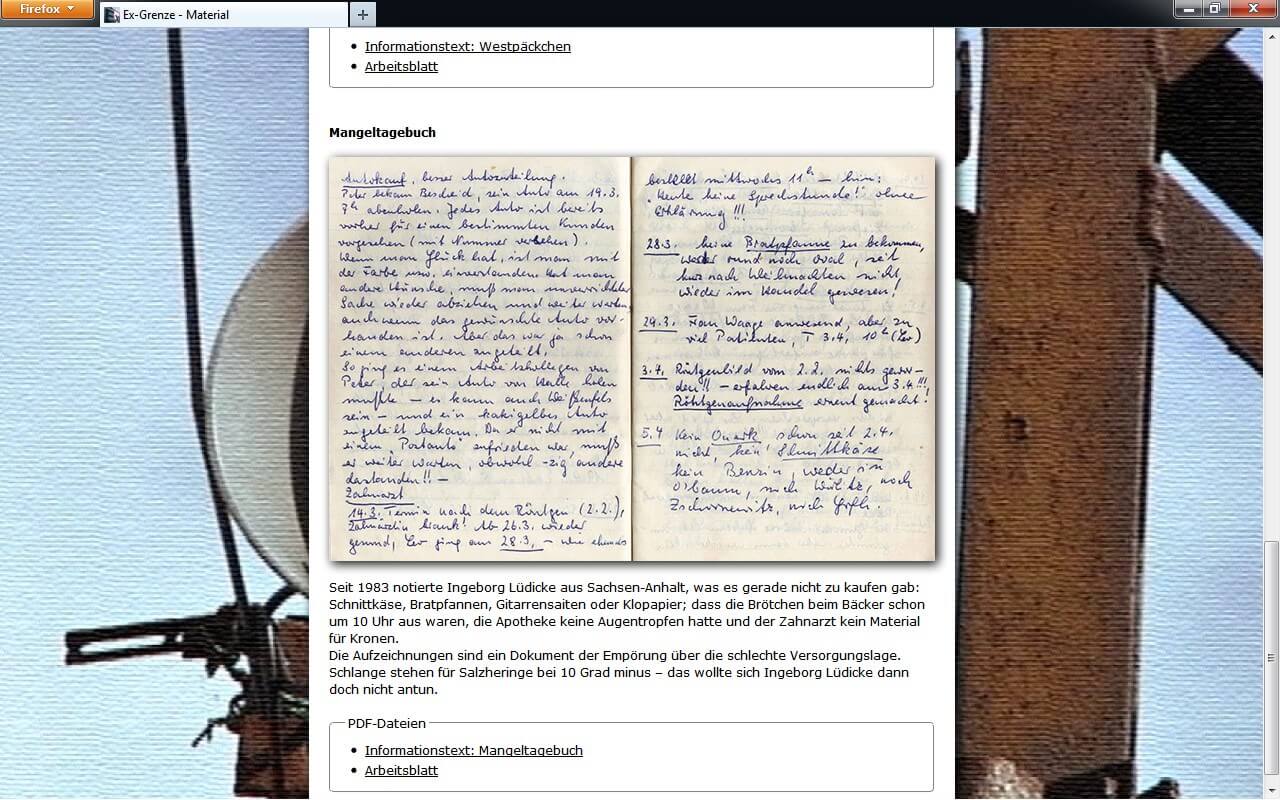 Firefox
Ex-Grenze - Material
Informationstext: Westpäckchen
Arbeitsblatt
Mangeltagebuch
Autokauf, besser Autozuteilung.
Peter bekam Bescheid, sein Auto am 19.3.
7h abzuholen. Jedes Auto ist bereits
vorher für einen bestimmten Kunden
vorgesehen (mit Nummer versehen).
Wenn man Glück hat, ist man mit
der Farbe usw. einverstanden. Hat man
andere Wünsche, muß man unverrichteter
Sache wieder abziehen und weiter warten,
auch wenn das gewünschte Auto vor-
handen ist. Aber das war ja schon
einem anderen zugeteilt.
So ging es einem Arbeitskollegen von
Peter, der sein Auto von Halle holen
mußte – es kann auch Weißenfels
sein – und ein kakigelbes Auto
zugeteilt bekam. Da er nicht mit
einem "Postauto" zufrieden war, muß
er weiter warten, obwohl -zig andere
dastanden!! –
Zahnarzt
14.3. Termin nach dem Röntgen (2.2.),
Zahnärztin krank! Ab 26.3. wieder
gesund, ging am 28.3. – wie ehemals
bestellt mittwochs 11h – hin:
"Heute keine Sprechstunde!" ohne
Erklärung!!!
28.3. keine Bratpfanne zu bekommen,
weder rund noch oval, seit
kurz nach Weihnachten nicht
wieder im Handel gewesen!
29.3. Frau Waage anwesend, aber zu
viel Patienten, T 3.4. 10h
3.4. Röntgenbild vom 2.2. nichts gewor-
den!! – erfahren endlich am 3.4.!!!
Röntgenaufnahme erneut gemacht!
5.4 Kein Quark schon seit 2.4.
nicht, kein Schnittkäse
kein Benzin, weder in
O'baum, noch Wörlitz, noch
Zschornewitz, noch
Seit 1983 notierte Ingeborg Lüdicke aus Sachsen-Anhalt, was es gerade nicht zu kaufen gab:
Schnittkäse, Bratpfannen, Gitarrensaiten oder Klopapier; dass die Brötchen beim Bäcker schon
um 10 Uhr aus waren, die Apotheke keine Augentropfen hatte und der Zahnarzt kein Material
für Kronen.
Die Aufzeichnungen sind ein Dokument der Empörung über die schlechte Versorgungslage.
Schlange stehen für Salzheringe bei 10 Grad minus – das wollte sich Ingeborg Lüdicke dann
doch nicht antun.
PDF-Dateien
Informationstext: Mangeltagebuch
Arbeitsblatt